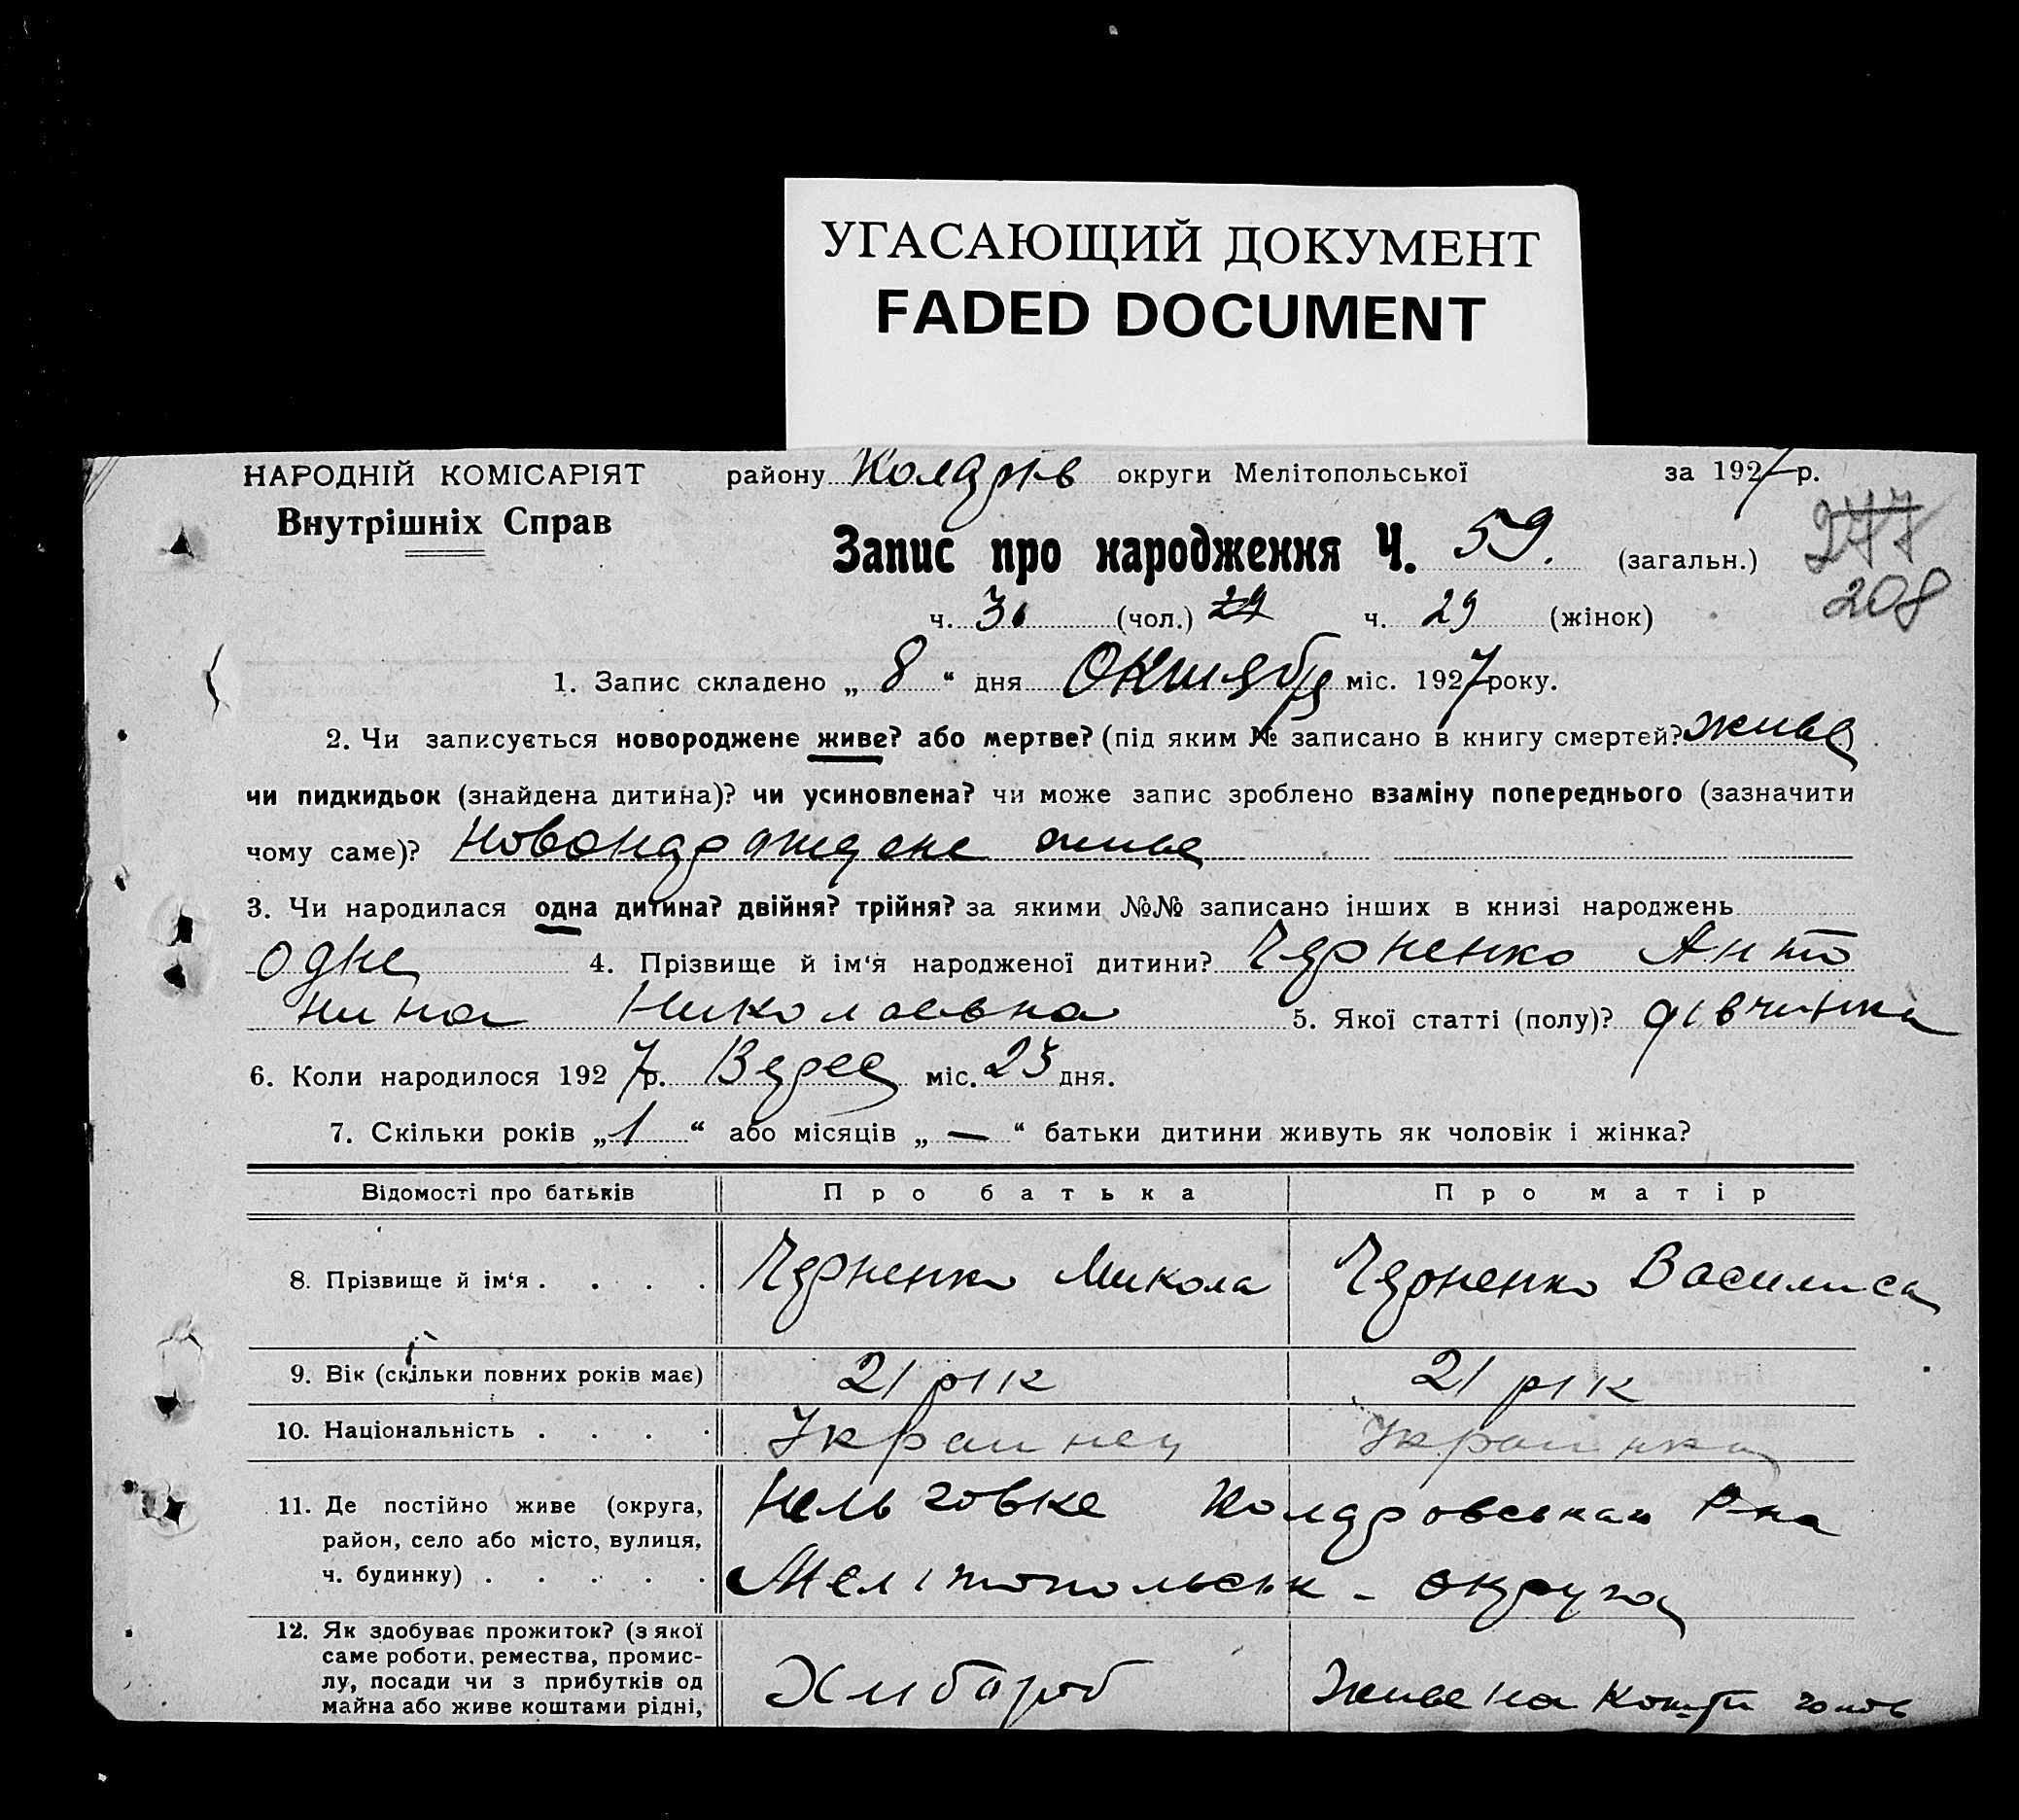 УГАСАЮЩИЙ ДОКУМЕНТ
FADED DOCUMENT
НАРОДНІЙ КОМІСАРІЯТ району Колдрів округи Мелітопольської за 1927 р.
Внутрішніх Справ
Запис про народження Ч. 59. (загальн.) 277
208
ч. 30 (чол.) 29 ч. 29 (жінок)
1. Запис складено „ 8 “ дня Октября міс. 1927 року.
2. Чи записується новороджене живе? або мертве? (під яким № записано в книгу смертей? живе
чи пидкидьок (знайдена дитина)? чи усиновлена? чи може запис зроблено взаміну попереднього (зазначити
чому саме)? живе
3. Чи народилася одна дитина? двійня? трійня? за якими №№ записано інших в книзі народжень
одне 4. Прізвище й ім‘я народженої дитини? Черненко Анто
нина Николаевна 5. Якої статті (полу)? дівчинка
6. Коли народилося 1927 р. Верес міс. 23 дня.
7. Скільки років „ 1 “ або місяців „ — “ батьки дитини живуть як чоловік і жінка?
Відомості про батьків Про батька Про матір
8. Прізвище й ім‘я . . . . Черненко Микола Черненко Василиса
9. Вік (скільки повних років має) 21 рік 21 рік
10. Національність . . . . Украинец Украинка
11. Де постійно живе (округа, Нельговке Колдровського Р-на
район, село або місто, вулиця,
ч. будинку) . . . . . Мелітопольськ - округа
12. Як здобуває прожиток? (з якої
саме роботи, ремества, промис-
лу, посади чи з прибутків од Хлибороб Живе на
майна або живе коштами рідні,